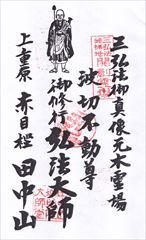 三弘法御真像元木霊場
波切不動尊
御修行弘法大師
上重原 赤目樫 田中山